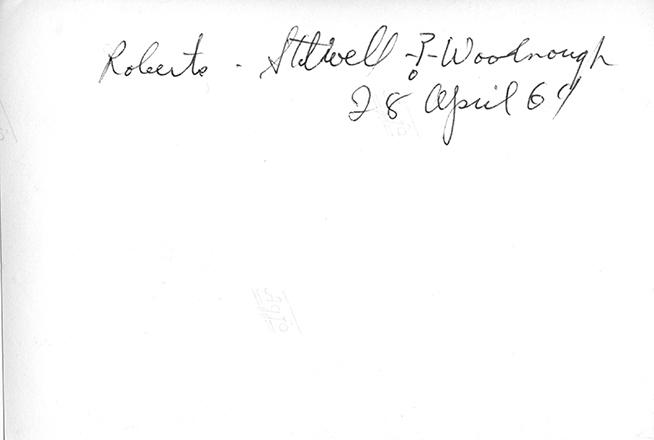 Roberts - Stilwell -?- Woodnough
28 April 69